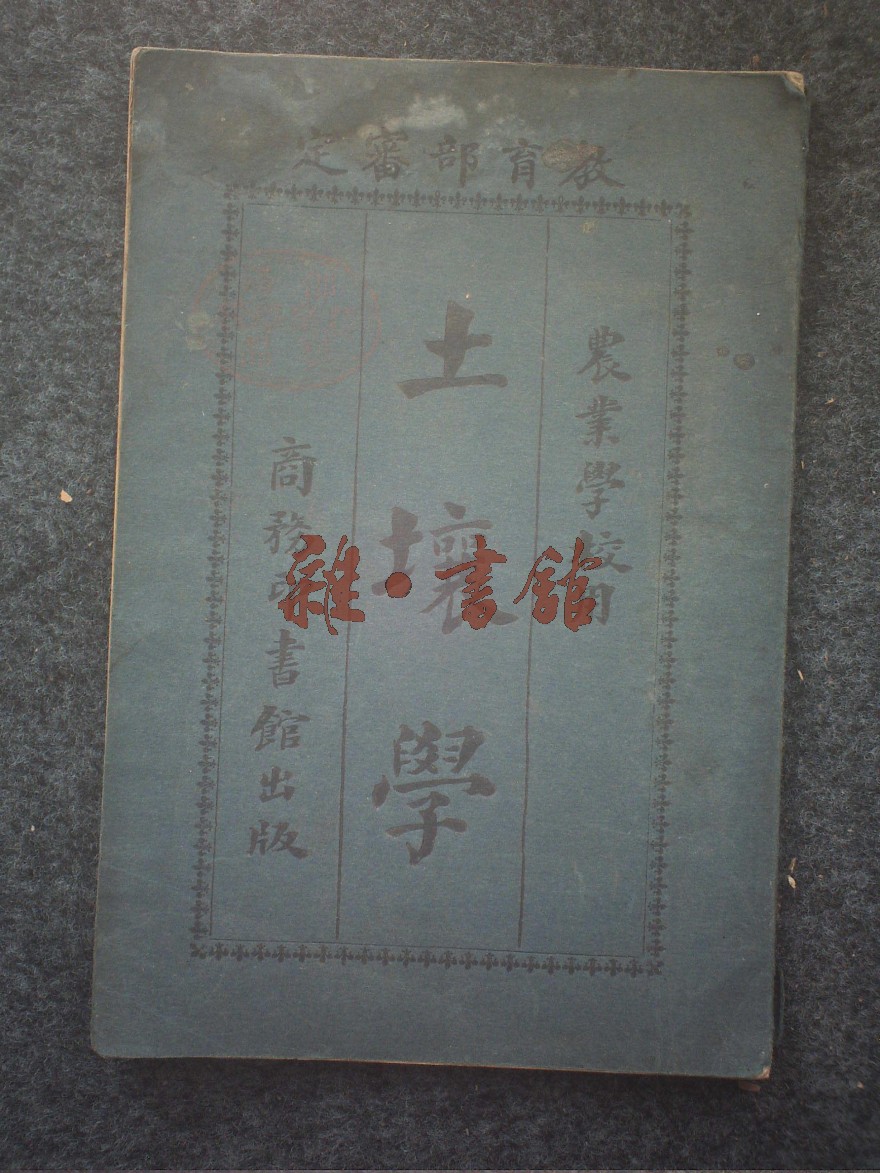 教育部審定
農業學校用
土壤學
商務印書館出版
雜·書館